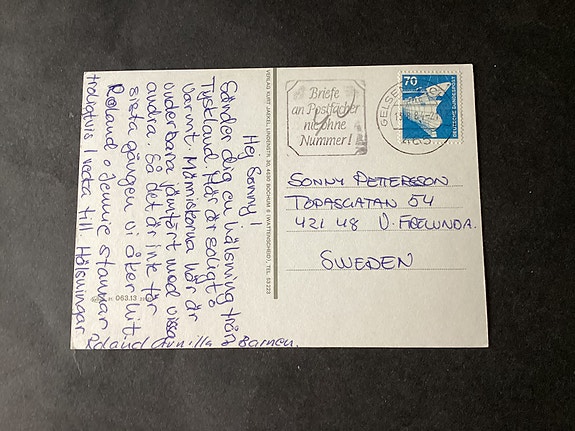 Hej Sonny!
Sänder dig en hälsning från
Tyskland. Här är soligt o
varmt. Människorna här är
underbara jämfört med vissa
andra. Så det är inte för
sista gången vi åker hit
Roland o Jennie stannar
troligtvis 1 vecka till. Hälsningar
Roland Gunilla Barnen.
VERLAG KURT JAKKEL, LINDENSTR. 30, 4630 BOCHUM 6 (WATTENSCHEID), TEL. 53 223
063.13
Briefe
an Postfächer
nie ohne
Nummer!
GELSE
70
DEUTSCHE BUNDESPOST
SONNY PETTERSSON
TOPASGATAN 54
421 48 V. FRÖLUNDA.
SWEDEN